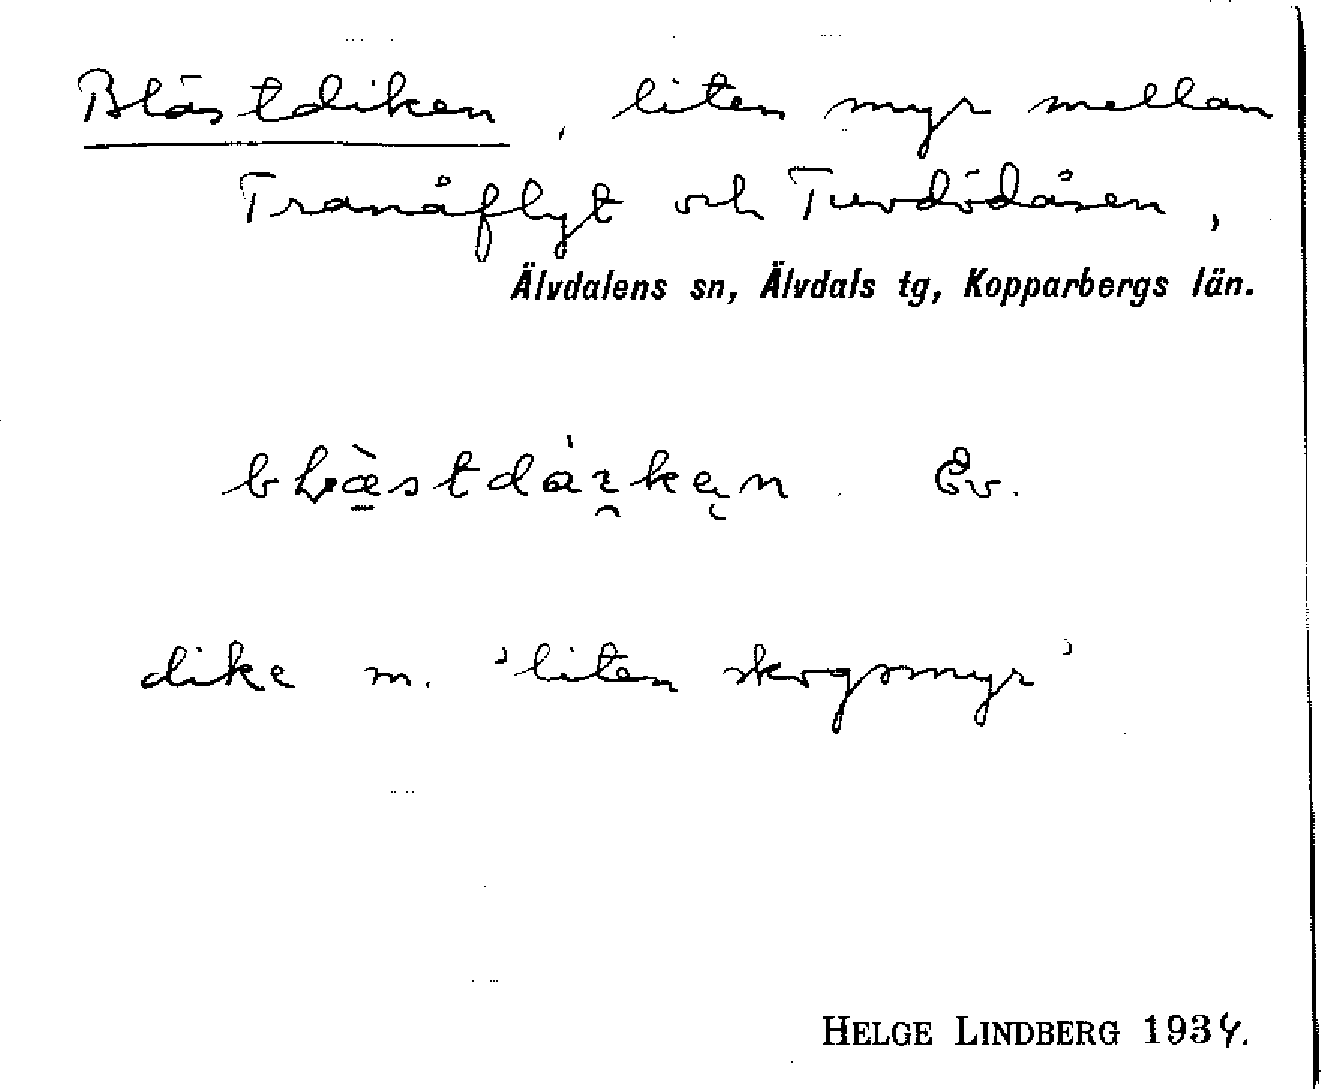 Blästdiken, liten myr mellan
Tranåflyt och Tuvdödåsen,
Älvdalens sn, Älvdals tg, Kopparbergs län.
Ev.
dike m. 'liten skogsmyr'
HELGE LINDBERG 1934.